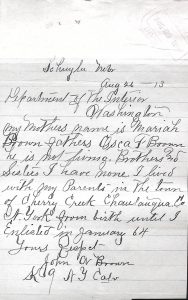 Schuyler Nebr
Aug 26 13
Department of The Interior
Washington
my Mothers name is Mariah
Brown fathers Asa F Brown
he is not living Brothers no
Sisters I have none I lived
with my Parents in the town
of Cherry Creek Chautauqua Co
N York from birth until I
Enlisted in January 64
Yours Respct
John W Brown
K 9 N Y Calv